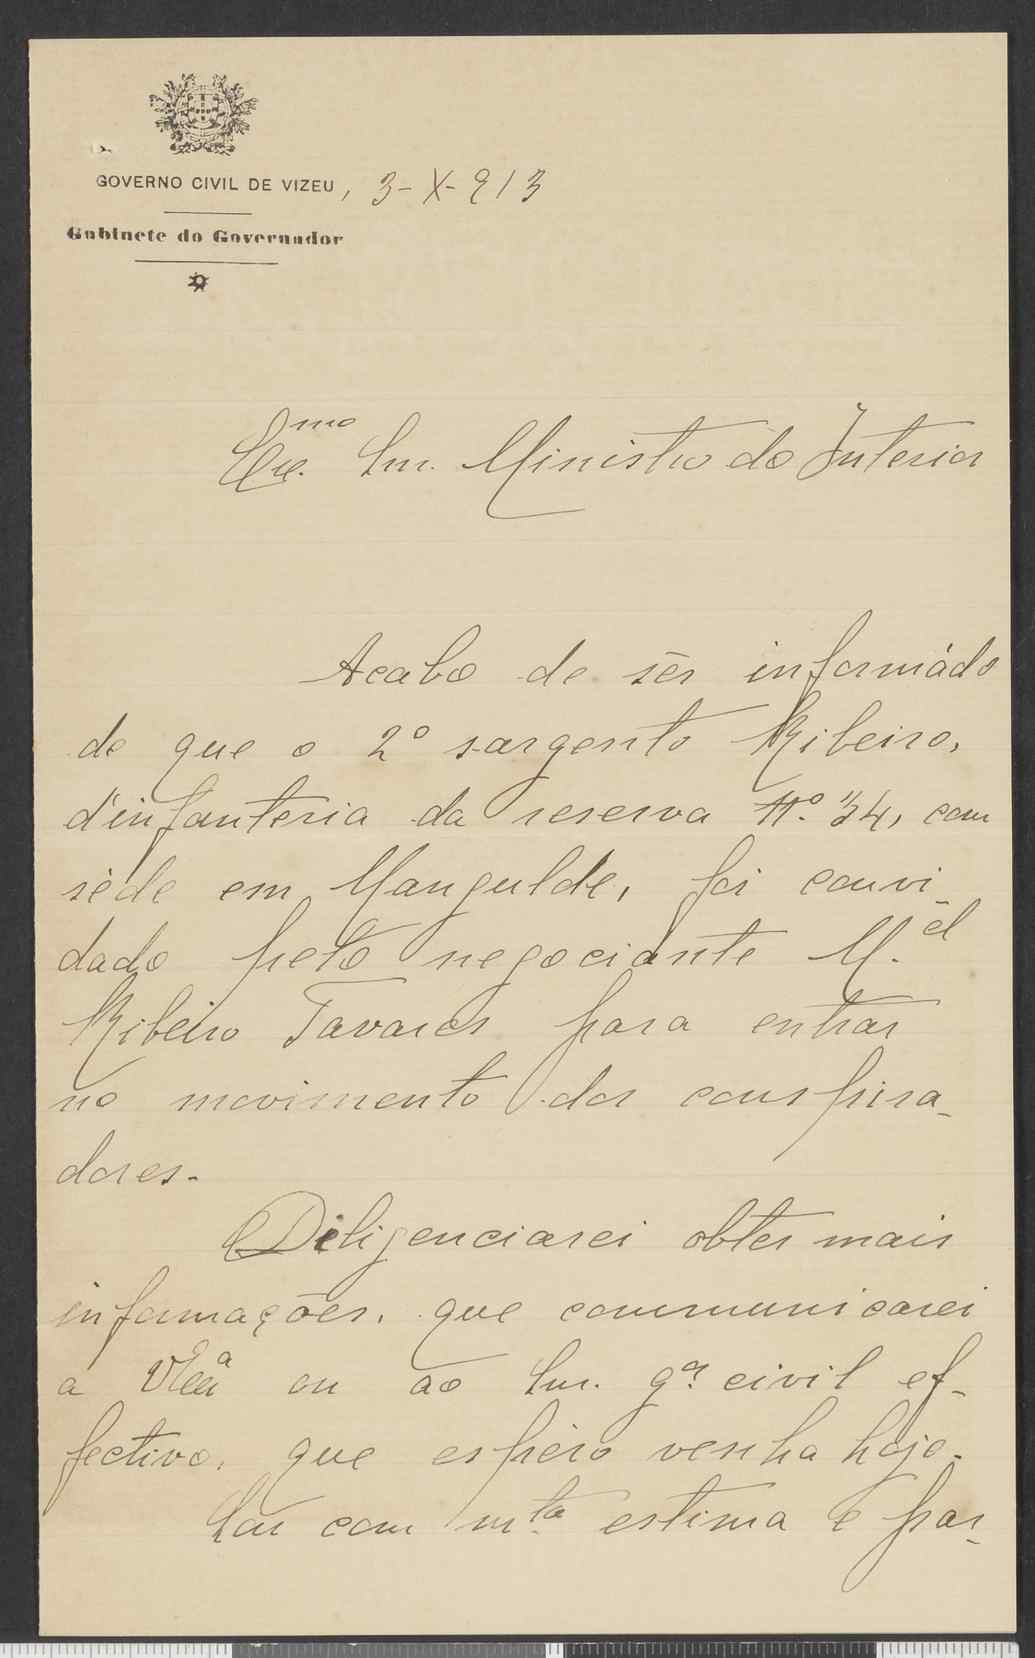 GOVERNO CIVIL DE VIZEU, 3-X-913
Gabinete do Governador
Ex.mo Snr. Ministro do Interior
Acabo de sêr informádo
de que o 2º sargento Ribeiro,
d'infanteria da reserva nº. 34, com
séde em Mangulde, foi convi-
dado pelo negociante M.el
Ribeiro Tavares para entrar
no movimento dos conspira-
dores.
Diligenciarei obter mais
informações, que communicarei
a VExª ou ao Snr. g.or civil ef-
fectivo, que espéro venha hoje.
Sou com m.ta estima e par-